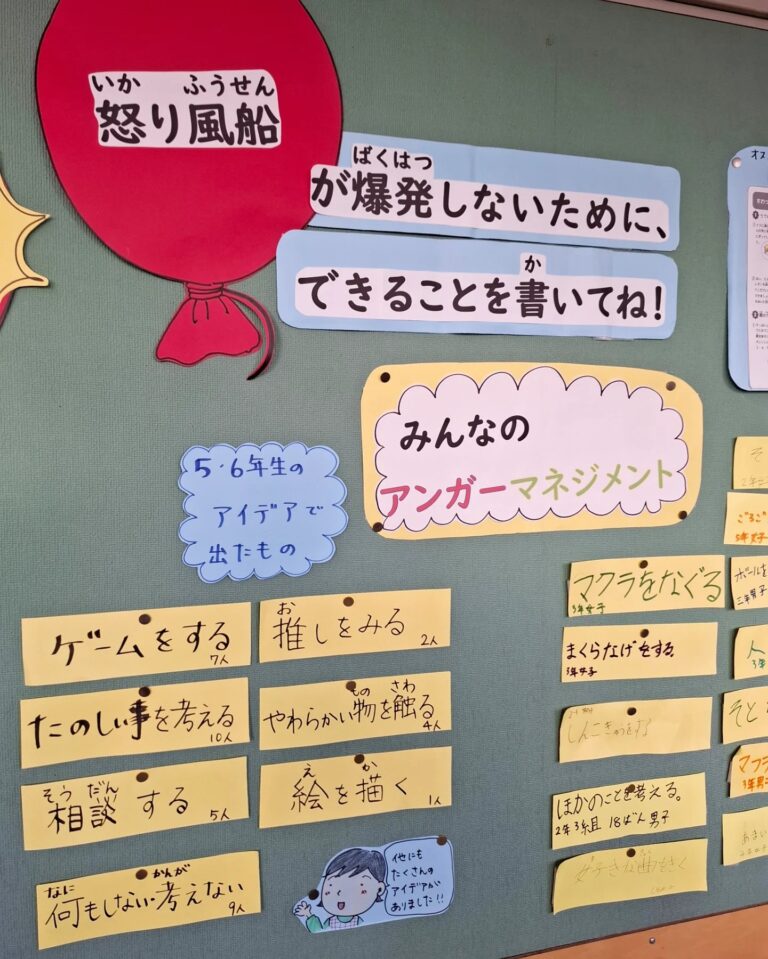 いか ふうせん
怒り風船
ばくはつ
が爆発しないために、
か
できることを書いてね!
みんなの
アンガーマネジメント
5・6年生の
アイデアで
出たもの
ゲームをする
7人
お
推しをみる
2人
たのしい事を考える
10人
もの さわ
やわらかい物を触る
4人
そう だん
相談する
5人
え か
絵を描く
1人
なに かんが
何もしない考えない
9人
他にも
たくさんの
アイデアが
ありました!!
マクラをなぐる
3年女子
まくらなげをする
3年女子
しんこきゅうをする
ほかのことを考える。
2年3組 18ばん 男子
好きな曲をきく
ごろご
5年女子
ボールを
三年男子
人
3年
そと
マクラ
3年男子
あまい
2年女子